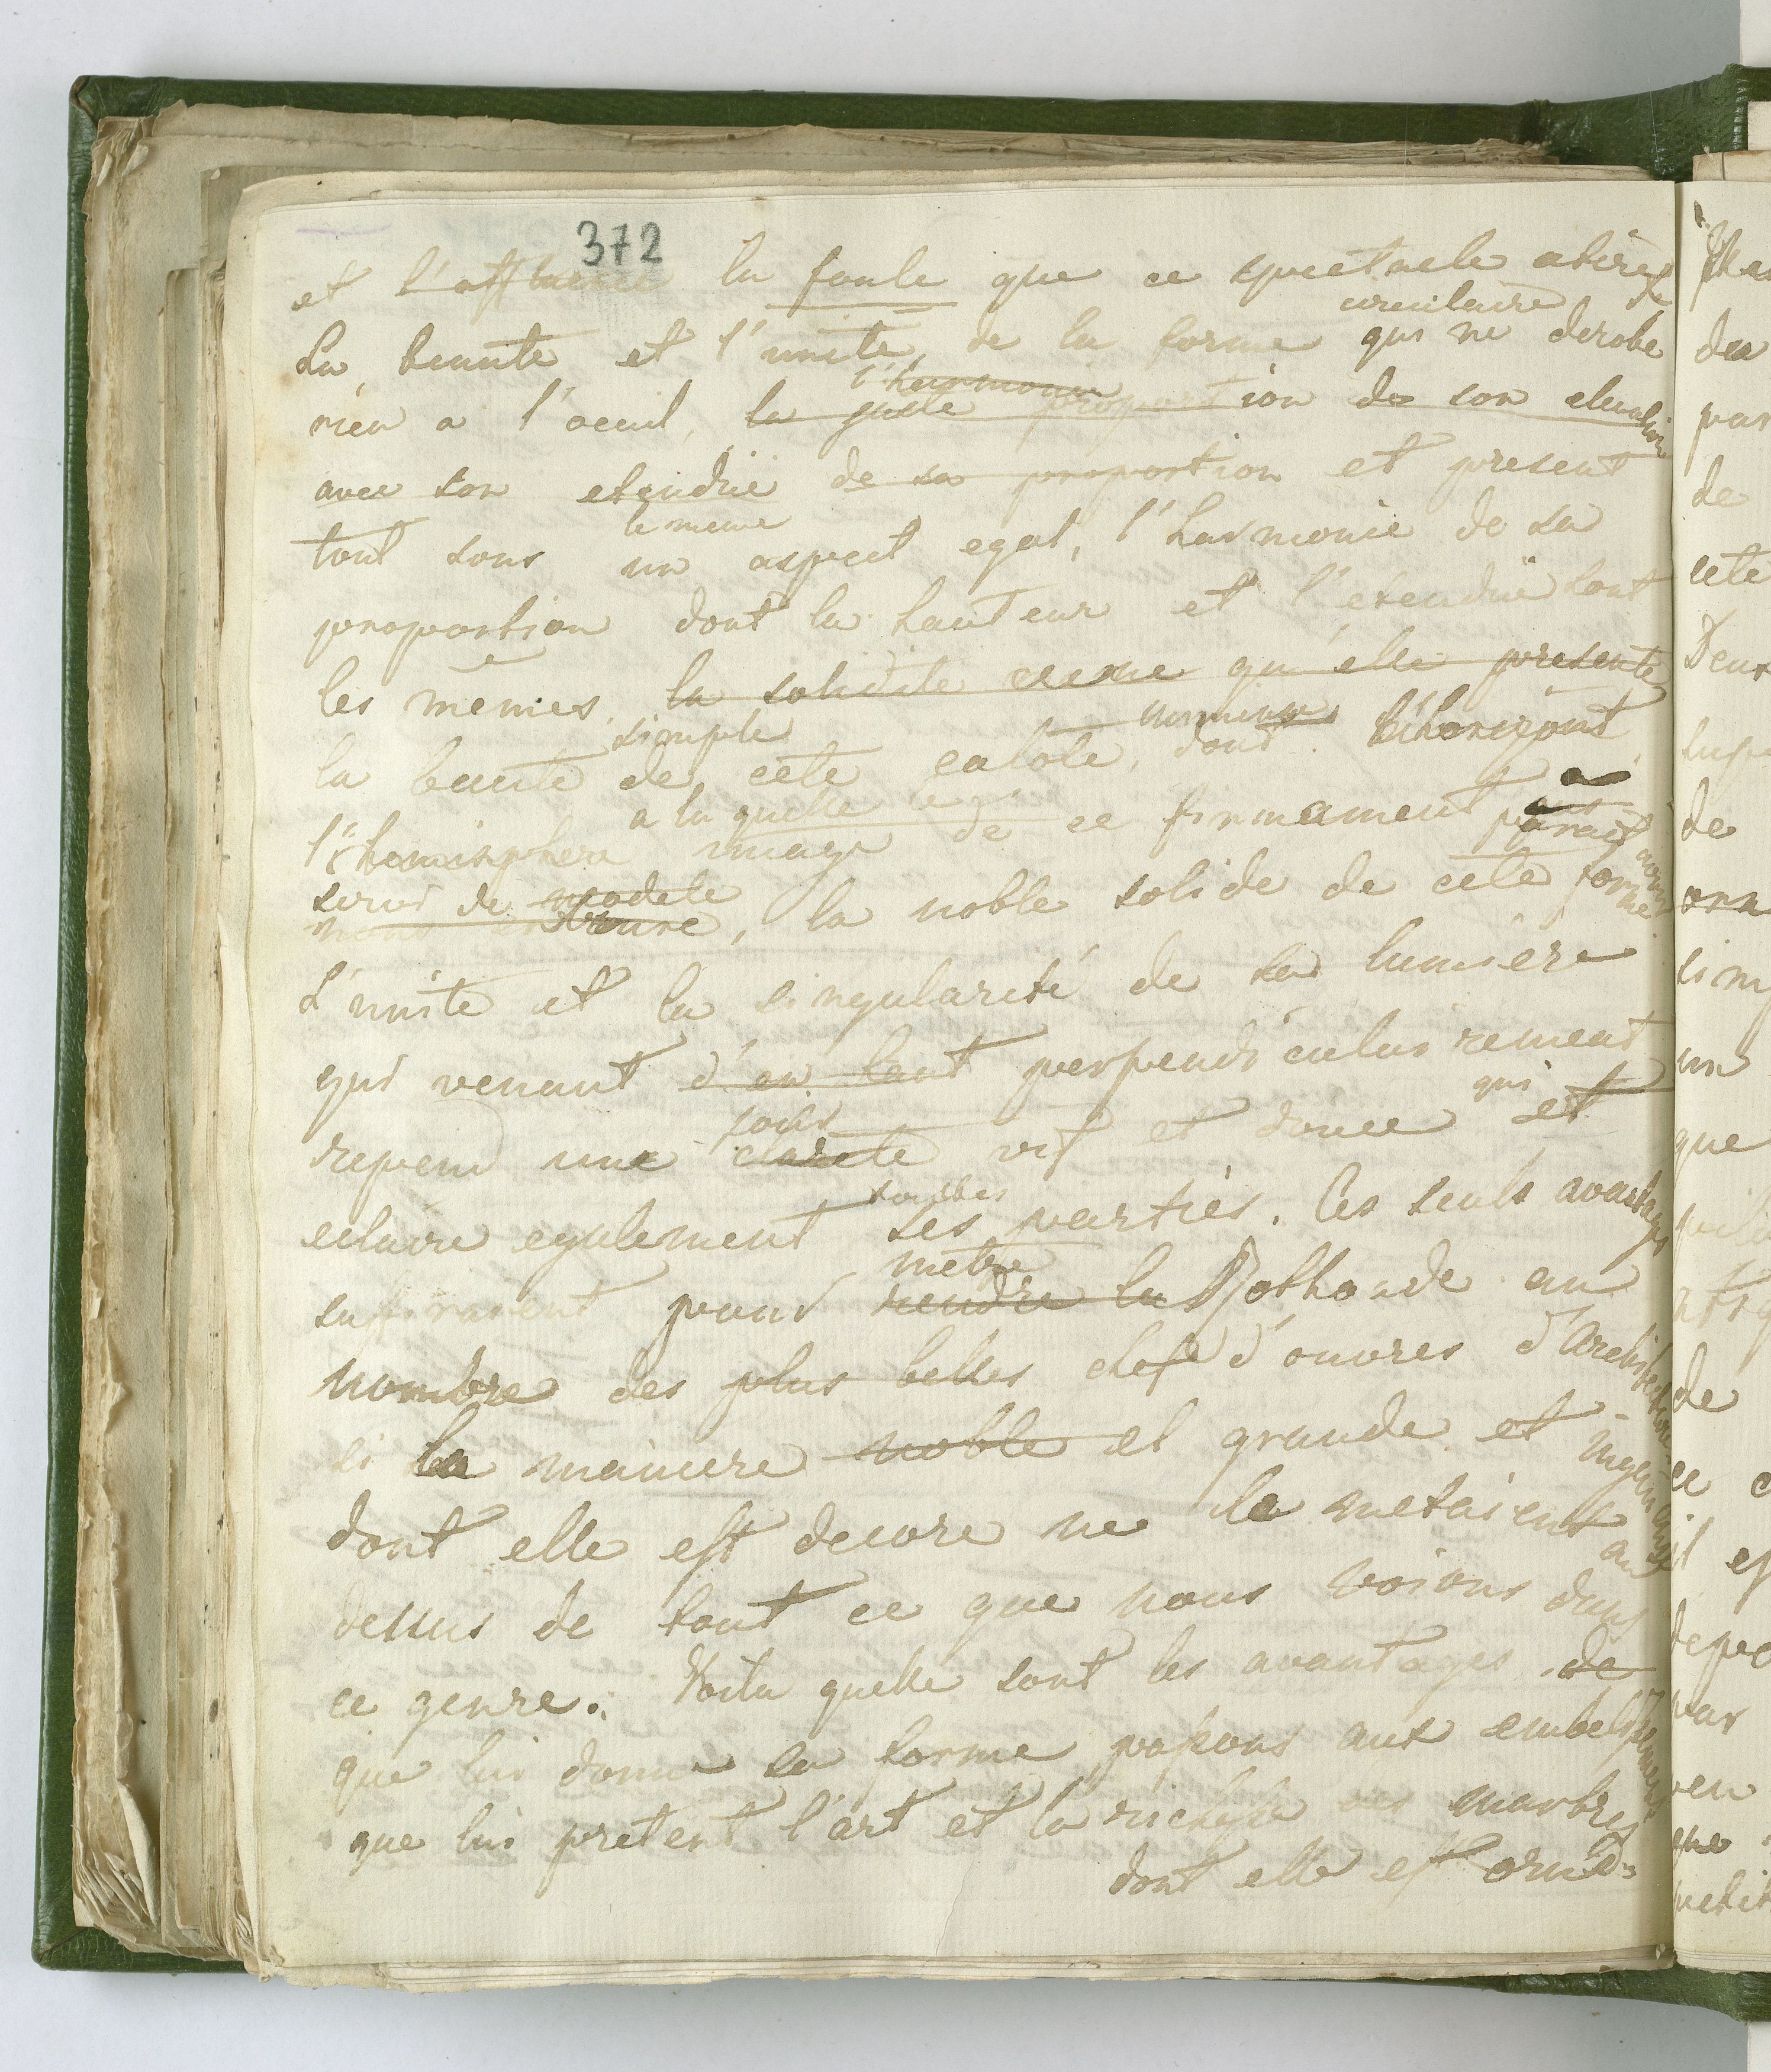 372
et l'affluence la foule que ce spectacle atire
circulaire
La beauté et l'unité, de la forme qui ne derobe
l'harmonie
rien a l'oeuil, la juste proportion de son elevation
avec son etendüe de sa proportion et present
le meme
tout sous un aspect egal, l'harmonie de sa
proportion dont la hauteur et l'etendüe sont
les mêmes. la solidité qu'elle presente
simple
la beauté de cete calote, dont l'horizont
a la quelle
l'hemisphere image de ce firmament parait
servi de modele
la noble solide de cete forme
L'unité et la singularité de sa lumiere
qui venant d'en haut perpendiculairement
jour qui
repend une clareté vif et douce et
toutes
eclaire egalement ses parties. Ces seuls avantages
metre
suffiraient pour rendre la Rothonde au
nombre des plus belles chef d'ouvres d'Architecture
si la maniere noble et grande et ingenieuse
dont elle est decore ne la metaient au
dessus de tout ce que nous voions dans
ce genre. Voila quelle sont les avantages de
que lui donne sa forme, passons aux embelissements
que lui pretent l'art et la richesse des marbres
dont elle est orné